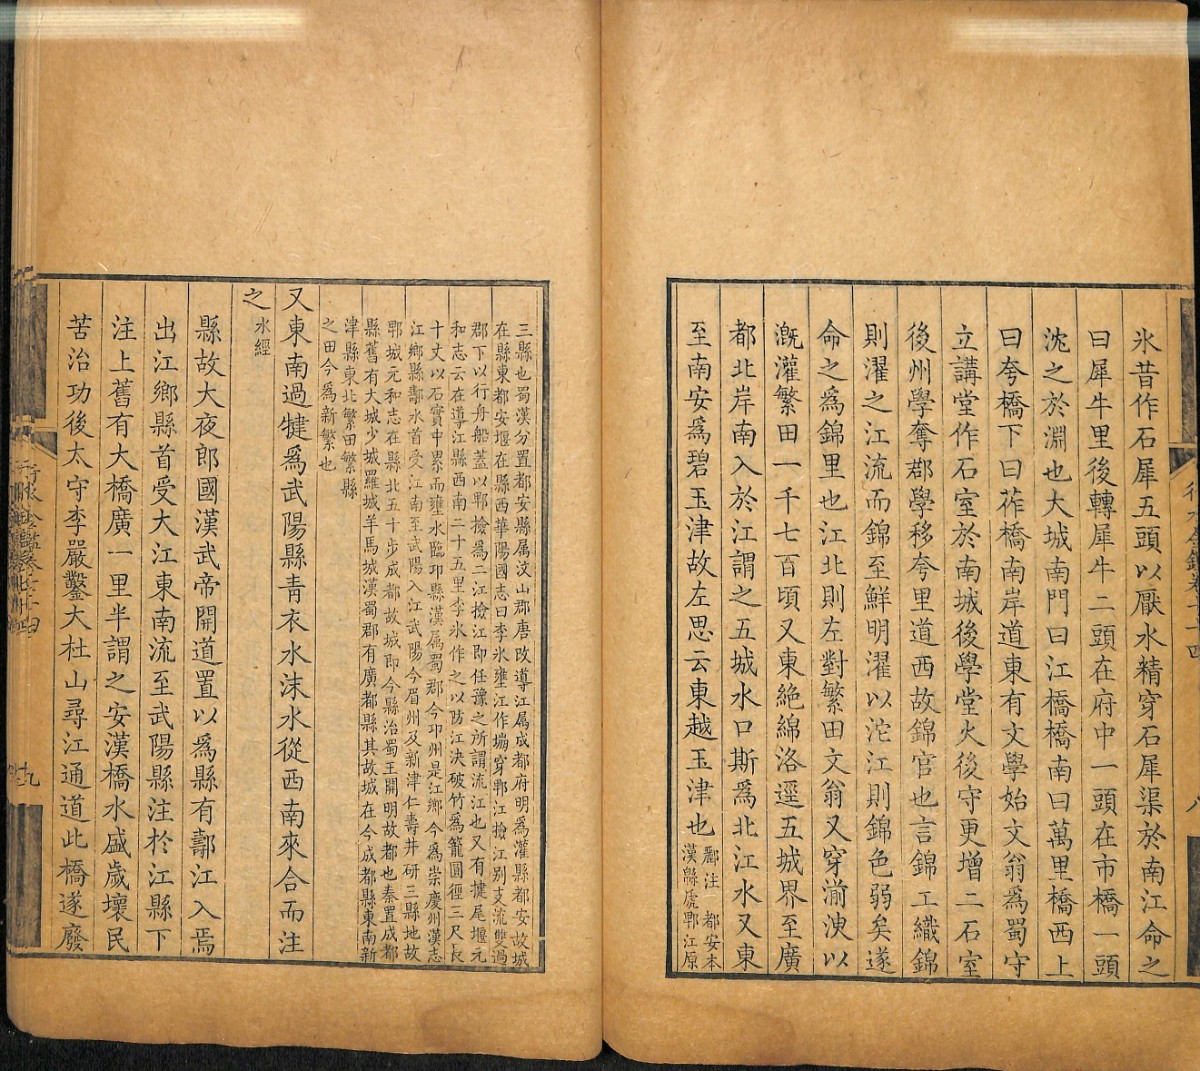 氷昔作石犀五頭以厭水精穿石犀渠於南江命之
曰犀牛里後轉犀牛二頭在府中一頭在市橋一頭
沈之於淵也大城南門曰江橋橋南曰萬里橋西上
曰夸橋下曰莋橋南岸道東有文學始文翁為蜀守
立講堂作石室於南城後學堂火後守更增二石室
後州學奪郡學移夸里道西故錦官也言錦工織錦
則濯之江流而錦至鮮明濯以沱江則錦色弱矣遂
命之為錦里也江北則左對繁田文翁又穿湔洩以
溉灌繁田一千七百頃又東絶綿洛逕五城界至廣
都北岸南入於江謂之五城水口斯為北江水又東
至南安為碧玉津故左思云東越玉津也
酈注 都安本
漢緜虒郫江原
三縣也蜀漢分置都安縣属汶山郡唐改導江属成都府明為灌縣都安故城
在縣東都安堰在縣西華陽國志曰李氷壅江作堋穿郫江撿江別支流雙過
郡下以行舟船蓋以郫撿為二江撿江即任豫之所謂流江也又有揵尾堰元
和志云在導江縣西南二十五里李氷作之以防江決破竹為籠圓徑三尺長
十丈以石實中累而壅水臨卭縣漢属蜀郡今卭州是江鄉今為崇慶州漢志
江鄉縣䣢水首受江南至武陽入江武陽今眉州及新津仁壽井研三縣地故
郫城元和志在縣北五十步成都故城即今縣治蜀王開明故都也秦置成都
縣舊有大城少城羅城羊馬城漢蜀郡有廣都縣其故城在今成都縣東南新
津縣東北繁田繁縣
之田今為新繁也
又東南過犍為武陽縣青衣水沫水從西南來合而注
之
水經
縣故大夜郎國漢武帝開道置以為縣有䣢江入焉
出江鄉縣首受大江東南流至武陽縣注於江縣下
注上舊有大橋廣一里半謂之安漢橋水盛歲壞民
苦治功後太守李嚴鑿大杜山尋江通道此橋遂廢
九
八